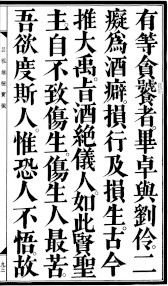 有等貪饕者畢卓與劉伶二
癡為酒癖損行及損生古今
推大禹旨酒絶儀人如此賢聖
主自不致傷生傷生人最苦
吾欲度斯人惟恐人不悟故